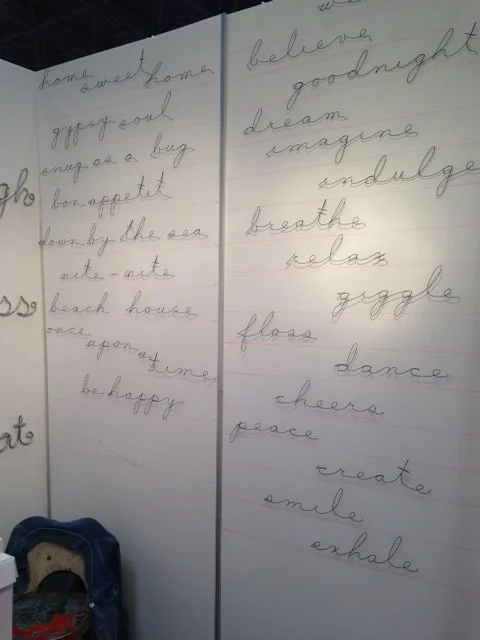 gh
ss
at
home sweet home
gypsy soul
snug as a bug
bon appetit
down by the sea
nite-nite
beach house
once
upon a
time
be happy
believe
goodnight
dream
imagine
indulge
breathe
relax
giggle
floss
dance
cheers
peace
create
smile
exhale